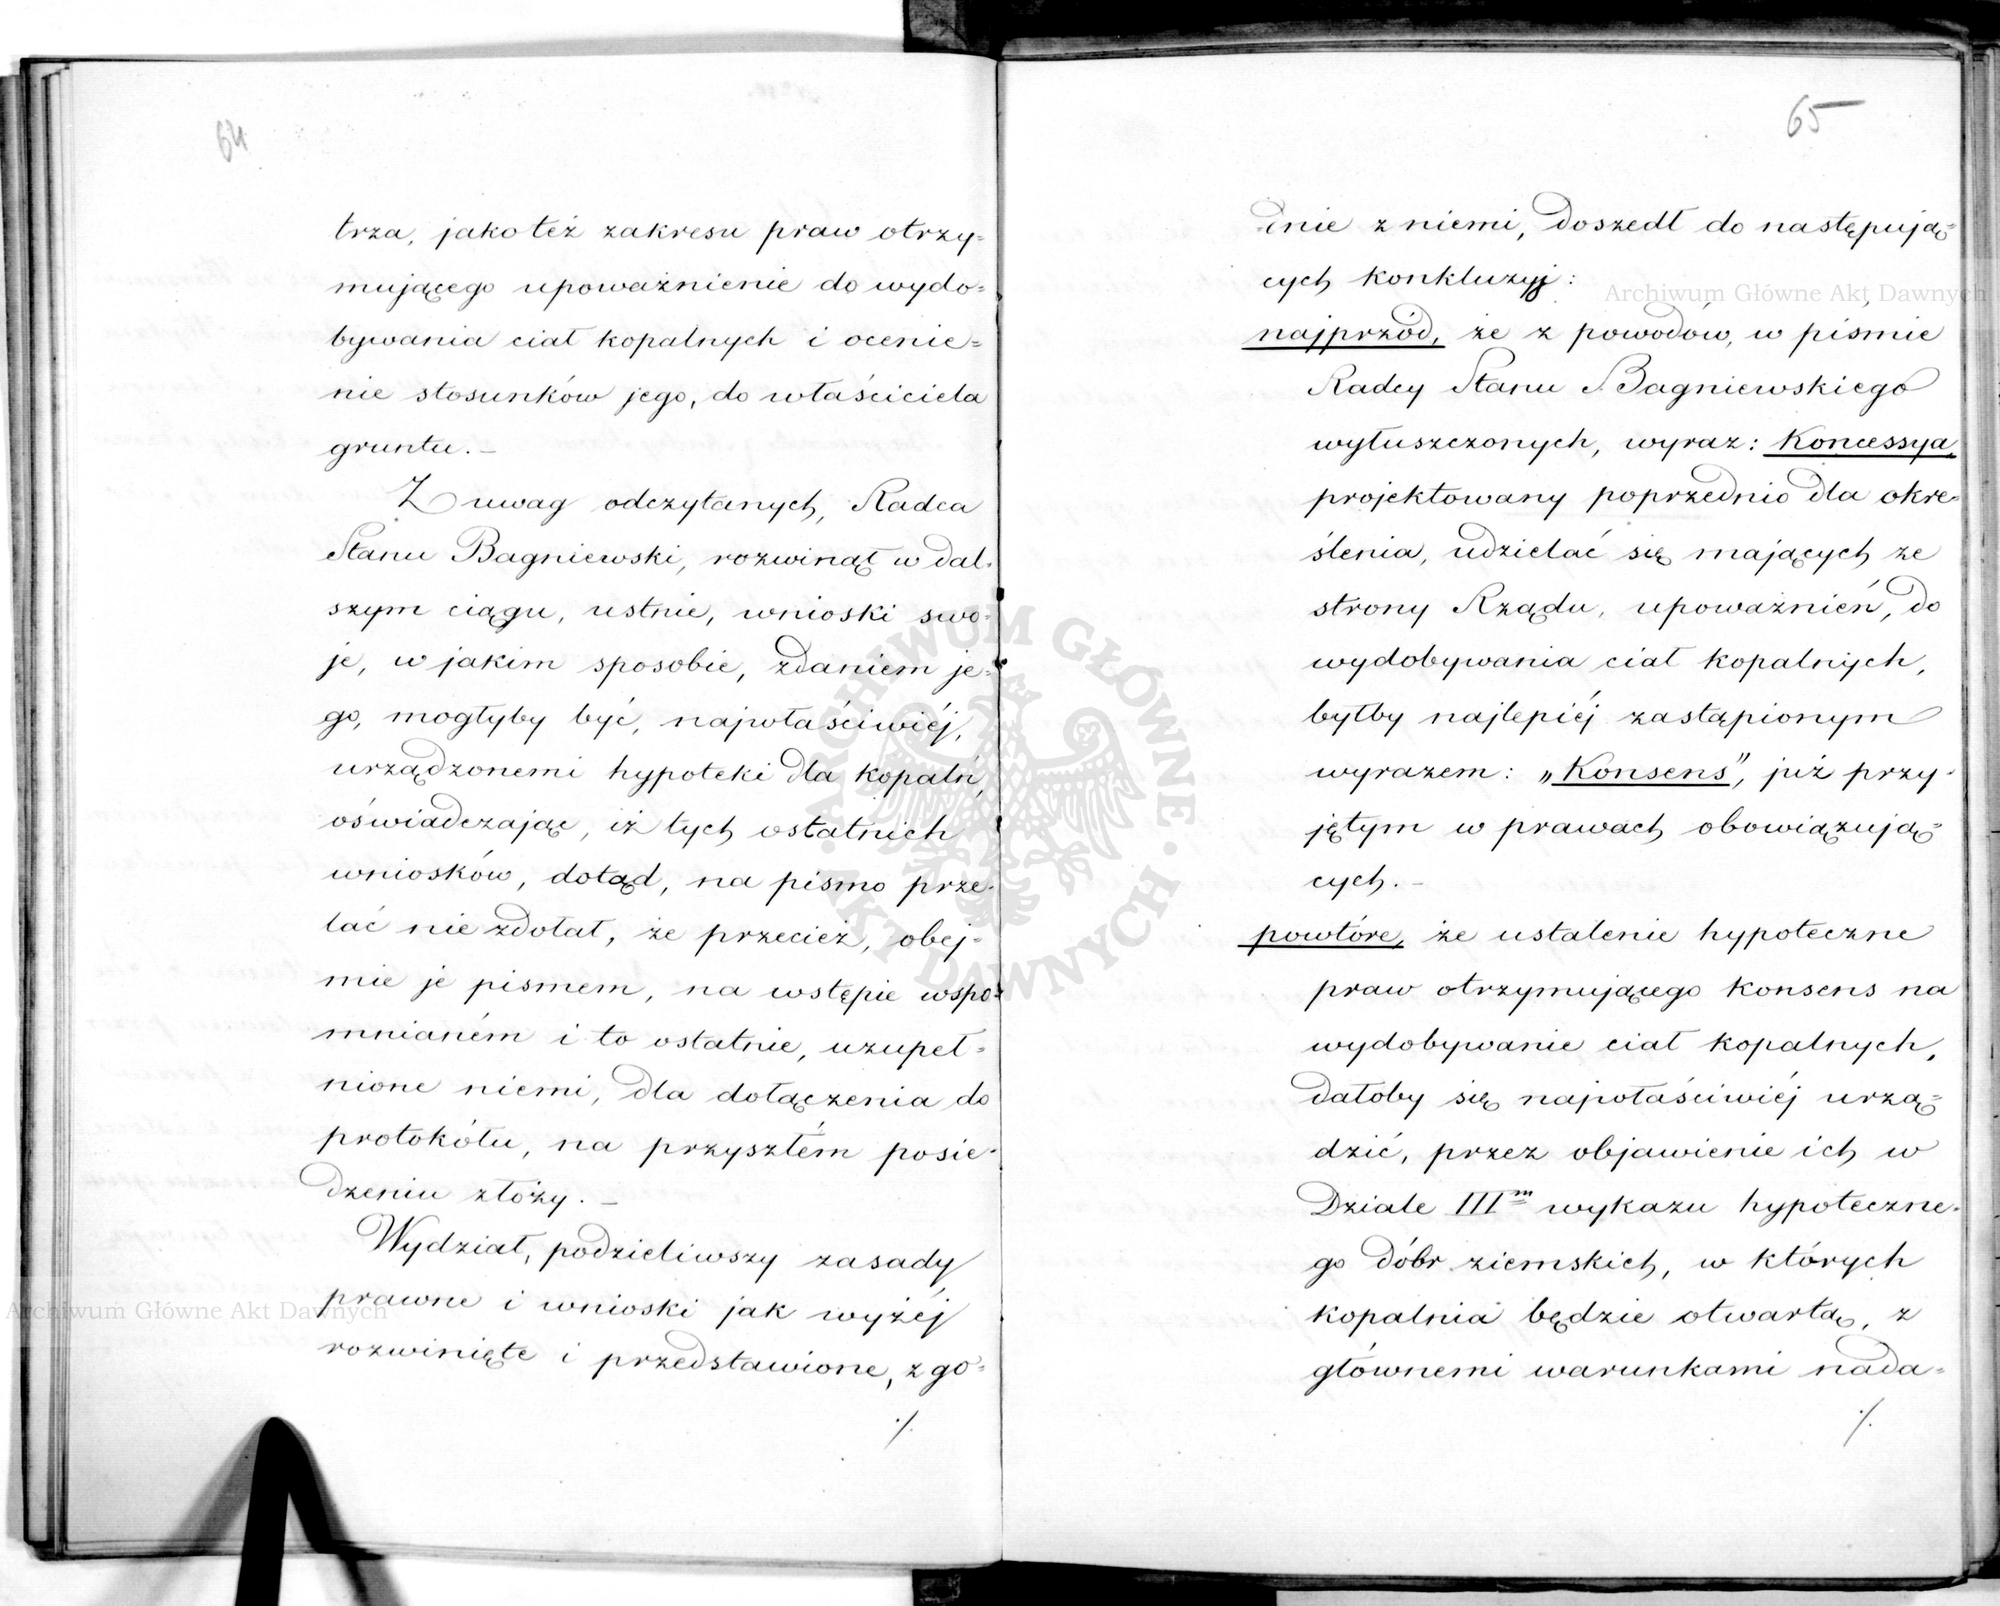 64
trza, jako też zakresu praw otrzy-
mującego upoważnienie do wydo-
bywania ciał kopalnych i ocenie-
nie stosunków jego, do właściciela
gruntu. –
Z uwag odczytanych, Radca
Stanu Bagniewski, rozwinął w dal-
szym ciągu, ustnie, wnioski swo-
je, w jakim sposobie, zdaniem je-
go, mogłyby być, najwłaściwiéj,
urządzonemi hypoteki dla kopalń,
oświadczając, iż tych ostatnich
wniosków, dotąd, na pismo prze-
lać nie zdołał, że przecież, obej-
mie je pismem, na wstępie wspo-
mnianém i to ostatnie, uzupeł-
nione niemi, dla dołączenia do
protokółu, na przyszłém posie-
dzeniu złoży. –
Wydział, podzieliwszy zasady
prawne i wnioski jak wyżéj
rozwinięte i przedstawione, zgo-
./.
65
dnie z niemi, doszedł do następują-
cych konkluzyj:
najprzód, że z powodów, w piśmie
Radcy Stanu Bagniewskiego
wyłuszczonych, wyraz: Koncessya,
projektowany poprzednio dla okre-
ślenia, udzielać się mających ze
strony Rządu, upoważnień, do
wydobywania ciał kopalnych,
byłby najlepiéj zastąpionym
wyrazem: „Konsens”, już przy-
jętym w prawach obowiązują-
cych. –
powtóre, że ustalenie hypoteczne
praw otrzymującego konsens na
wydobywanie ciał kopalnych,
dałoby się najwłaściwiéj urzą-
dzić, przez objawienie ich w
Dziale IIIm wykazu hypoteczne-
go dóbr ziemskich, w których
kopalnia będzie otwartą, z
głównemi warunkami nada-
./.
Archiwum Główne Akt Dawnych
Archiwum Główne Akt Dawnych
ARCHIWUM GŁÓWNE AKT DAWNYCH